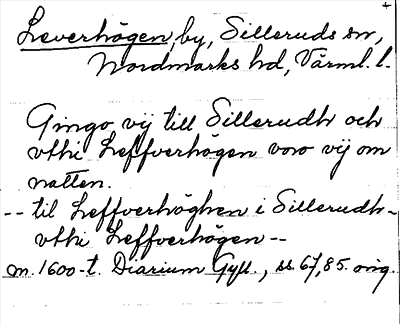 Leverhögen, by, Silleruds sn,
Nordmarks hd, Värml. l.
Gingo vij till Sillerudh och
vthi Leffverhögen voro vij om
natten.
-- til Leffverhöghen i Sillerudh -
vthi Leffverhögen --
m. 1600-t. Diarium Gyll., ss. 67, 85. orig.